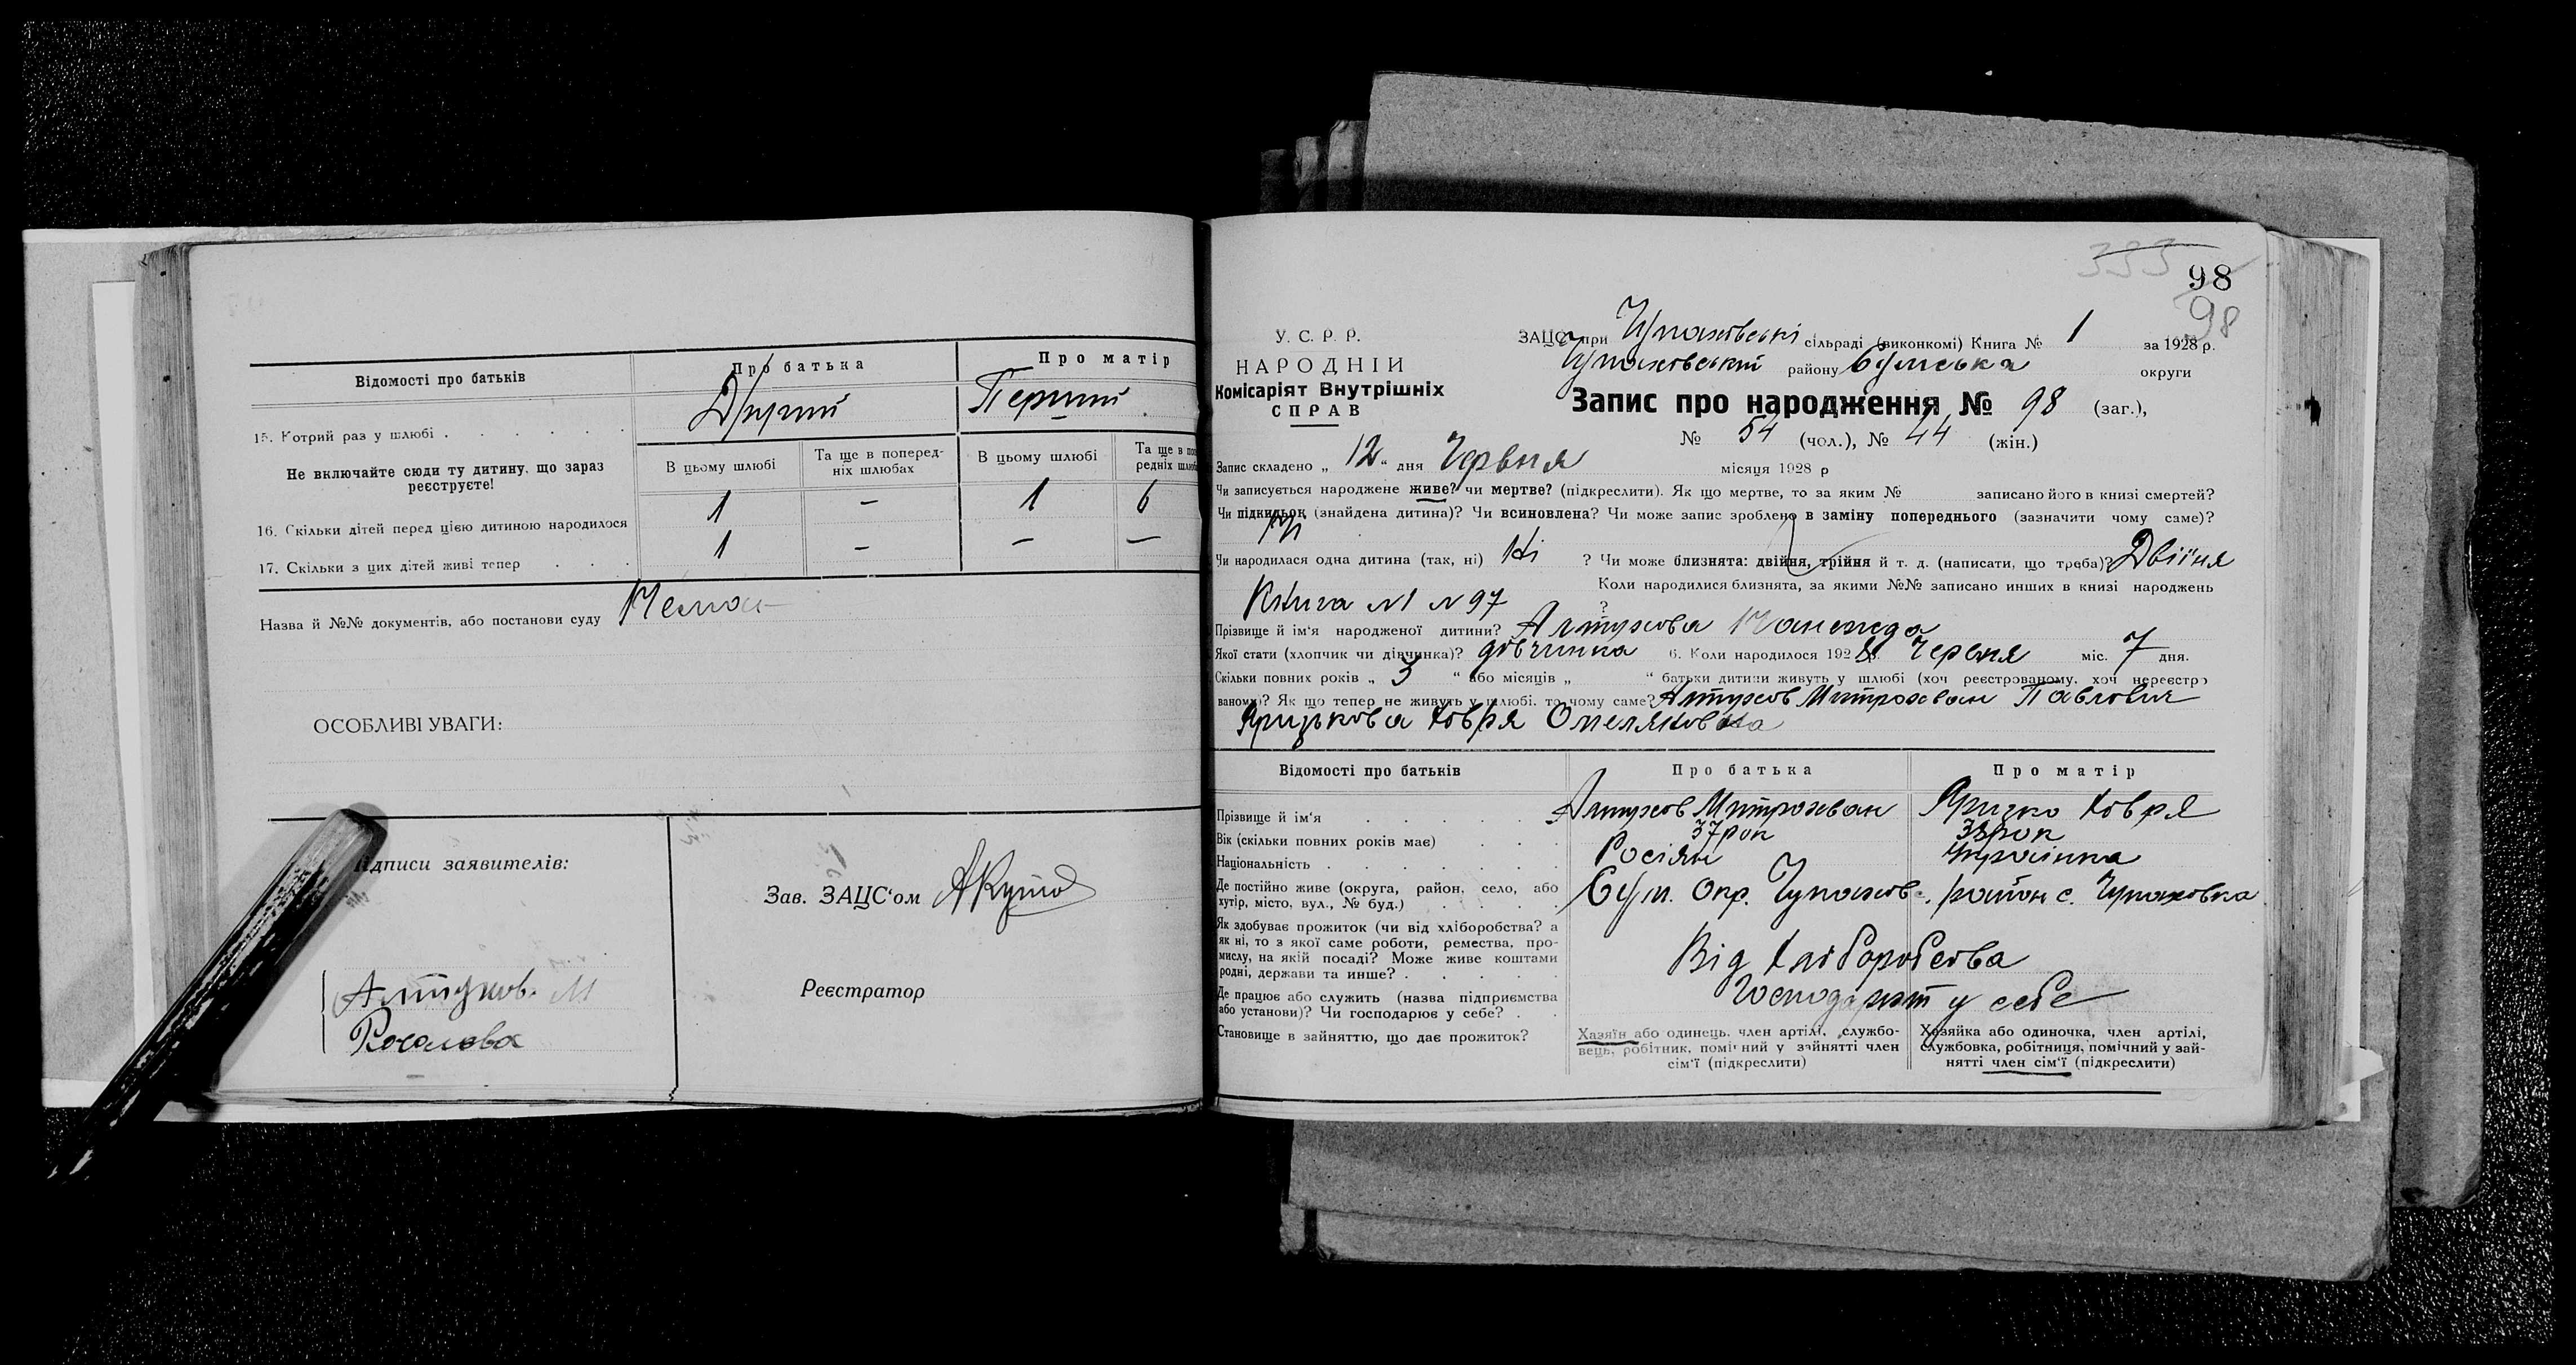 Відомості про батьків
Про батька
Про матір
15. Котрий раз у шлюбі
Другий
Перший
Не включайте сюди ту дитину, що зараз реєструєте!
В цьому шлюбі
Та ще в поперед-
ніх шлюбах
В цьому шлюбі
Та ще в по
редніх шлю
16. Скільки дітей перед цією дитиною народилося
1 — 1 6
17. Скільки з цих дітей живі тепер
1 — — —
Назва й №№ документів, або постанови суду
Немає
ОСОБЛИВІ УВАГИ:
ідписи заявителів:
Алтухов М
Зав. ЗАЦС'ом
Реєстратор
333
98
98
У. С. Р. Р.
НАРОДНІЙ
Комісаріят Внутрішніх
СПРАВ
ЗАЦС при Чупаховські сільраді (виконкомі) Книга № 1 за 1928 р.
Чупаховський району Сумська округи
Запис про народження № 98 (заг.),
№ 54 (чол.), № 44 (жін.)
Запис складено „ 12 “ дня Червня місяця 1928 р
Чи записується народжене живе? чи мертве? (підкреслити). Як що мертве, то за яким № записано його в книзі смертей?
Чи підкидьок (знайдена дитина)? Чи всиновлена? Чи може запис зроблено в заміну попереднього (зазначити чому саме)?
Чи народилася одна дитина (так, ні) Ні ? Чи може близнята: двійня, трійня й т. д. (написати, що треба)? Двійня
Коли народилися близнята, за якими №№ записано инших в книзі народжень
Книга №1 №97 ?
Прізвище й ім'я народженої дитини? Алтухова
Якої стати (хлопчик чи дівчинка)? дівчинка 6. Коли народилося 1928 р. Червня міс. 7 дня.
Скільки повних років „ 3 “ або місяців „ “ батьки дитини живуть у шлюбі (хоч реєстрованому, хоч нереєстро
ваному)? Як що тепер не живуть у шлюбі, то чому саме? Алтухов Митрохван Павлович
Яризькова Ховря Омеляновна
Відомості про батьків
Про батька
Про матір
Прізвище й ім'я
Алтухов Митрохван
Яризко Ховря
Вік (скільки повних років має)
37 рок
38 рок
Національність
Росіян
Українка
Де постійно живе (округа, район, село, або
хутір, місто, вул., № буд.)
Сум. Окр. Чупахов. район с. Чупаховка
Як здобуває прожиток (чи від хліборобства? а
як ні, то з якої саме роботи, ремества, про-
мислу, на якій посаді? Може живе коштами
родні, держави та инше?
Від Хліборобства
Де працює або служить (назва підприємства
або установи)? Чи господарює у себе?
Господарют у себе
Становище в зайняттю, що дає прожиток?
Хазяїн або одинець, член артілі, службо-
вець, робітник, помічний у зайнятті член
сім'ї (підкреслити)
Хазяйка або одиночка, член артілі,
службовка, робітниця, помічний у зай-
нятті член сім'ї (підкреслити)